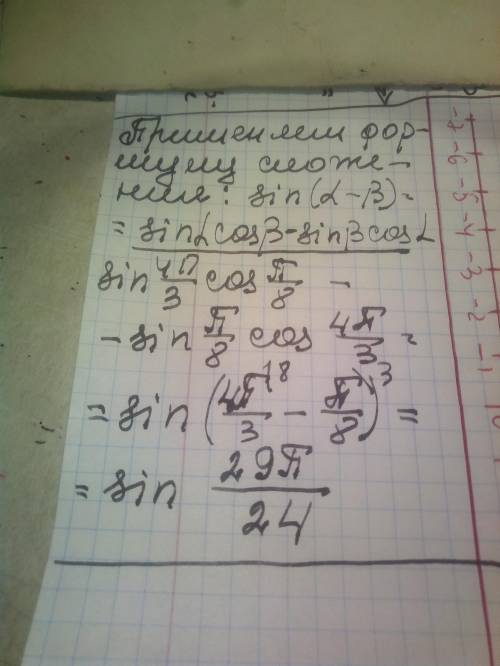 Применяем фор-
мулу сложе-
ния: sin(α-β)=
= sinα cosβ-sinβ cosα
sin 4π/3 cos π/8 -
- sin π/8 cos 4π/3 =
= sin (4π/3 \8 - π/8 \3) =
= sin 29π/24
-7 -6 -5 -4 -3 -2 -1